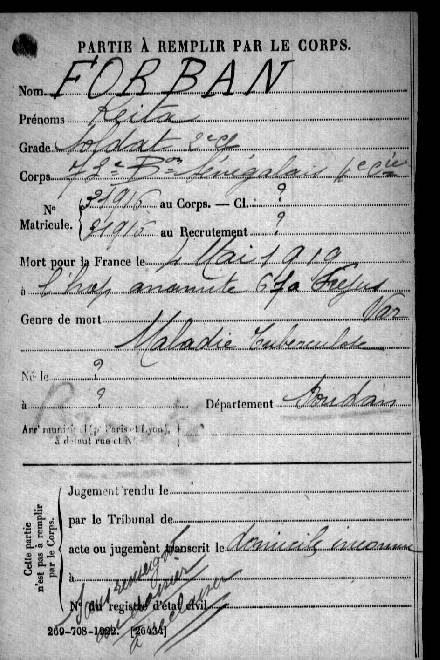 PARTIE À REMPLIR PAR LE CORPS.
Nom FORBAN
Prénoms Keita
Grade Soldat 2e cl
Corps 72e Bon Sénégalais 1e Cie
No Matricule. 21916 au Corps. — Cl. ?
21916 au Recrutement ?
Mort pour la France le 1 Mai 1919
à l'hop anamite 67 a Fréjus
Var
Genre de mort
Maladie Tuberculose
Né le ?
à ? Département Soudan
Arrt municipal (pr Paris et Lyon),
à défaut rue et No
Cette partie n'est pas à remplir par le Corps.
Jugement rendu le
par le Tribunal de
acte ou jugement transcrit le domicile inconnu
à
No du registre d'état civil
269-708-1922. [26434]